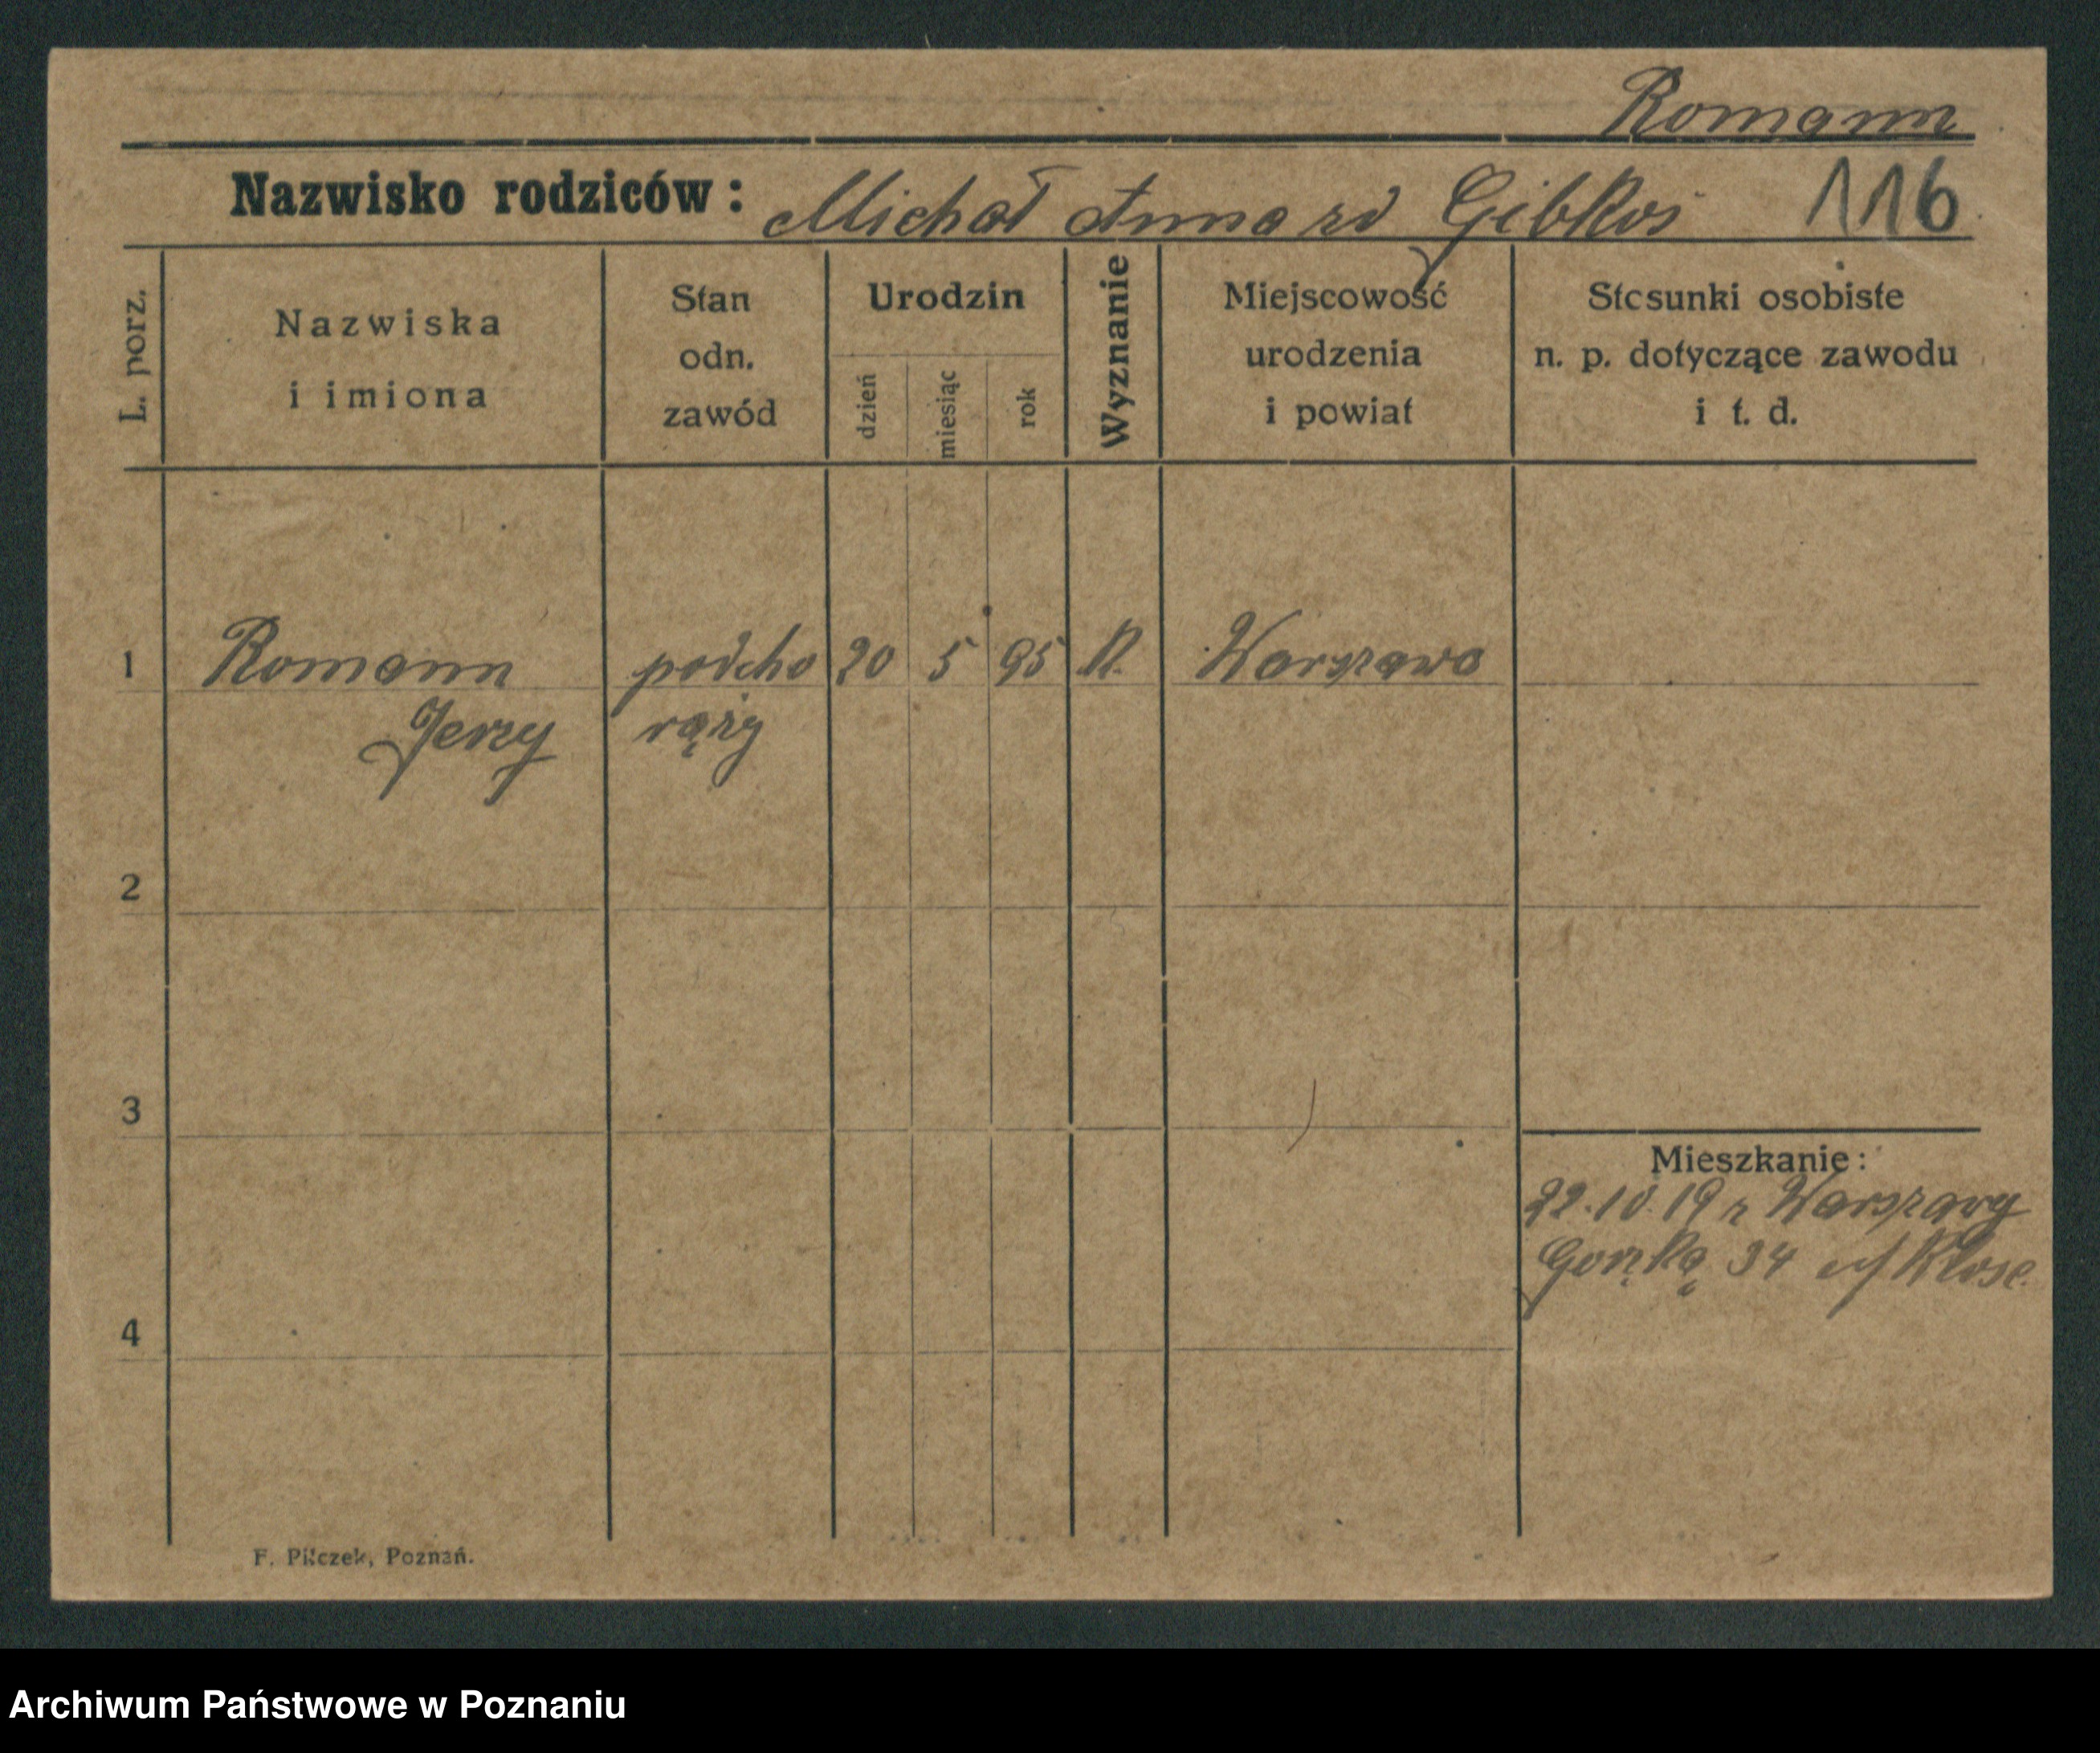 Romann
Nazwisko rodziców: Michał Anna zd Gibkoś 116
L. porz.
Nazwiska
i imiona
Stan
odn.
zawód
Urodzin
dzień
miesiąc
rok
Wyznanie
Miejscowość
urodzenia
i powiat
Stosunki osobiste
n. p. dotyczące zawodu
i t. d.
1 Romann podcho 20 5 95 R. Warszawa
Jerzy rąży
2
3
Mieszkanie:
22.10.19 z Warszawy
34 Klose
4
F. Pilczek, Poznań.
Archiwum Państwowe w Poznaniu